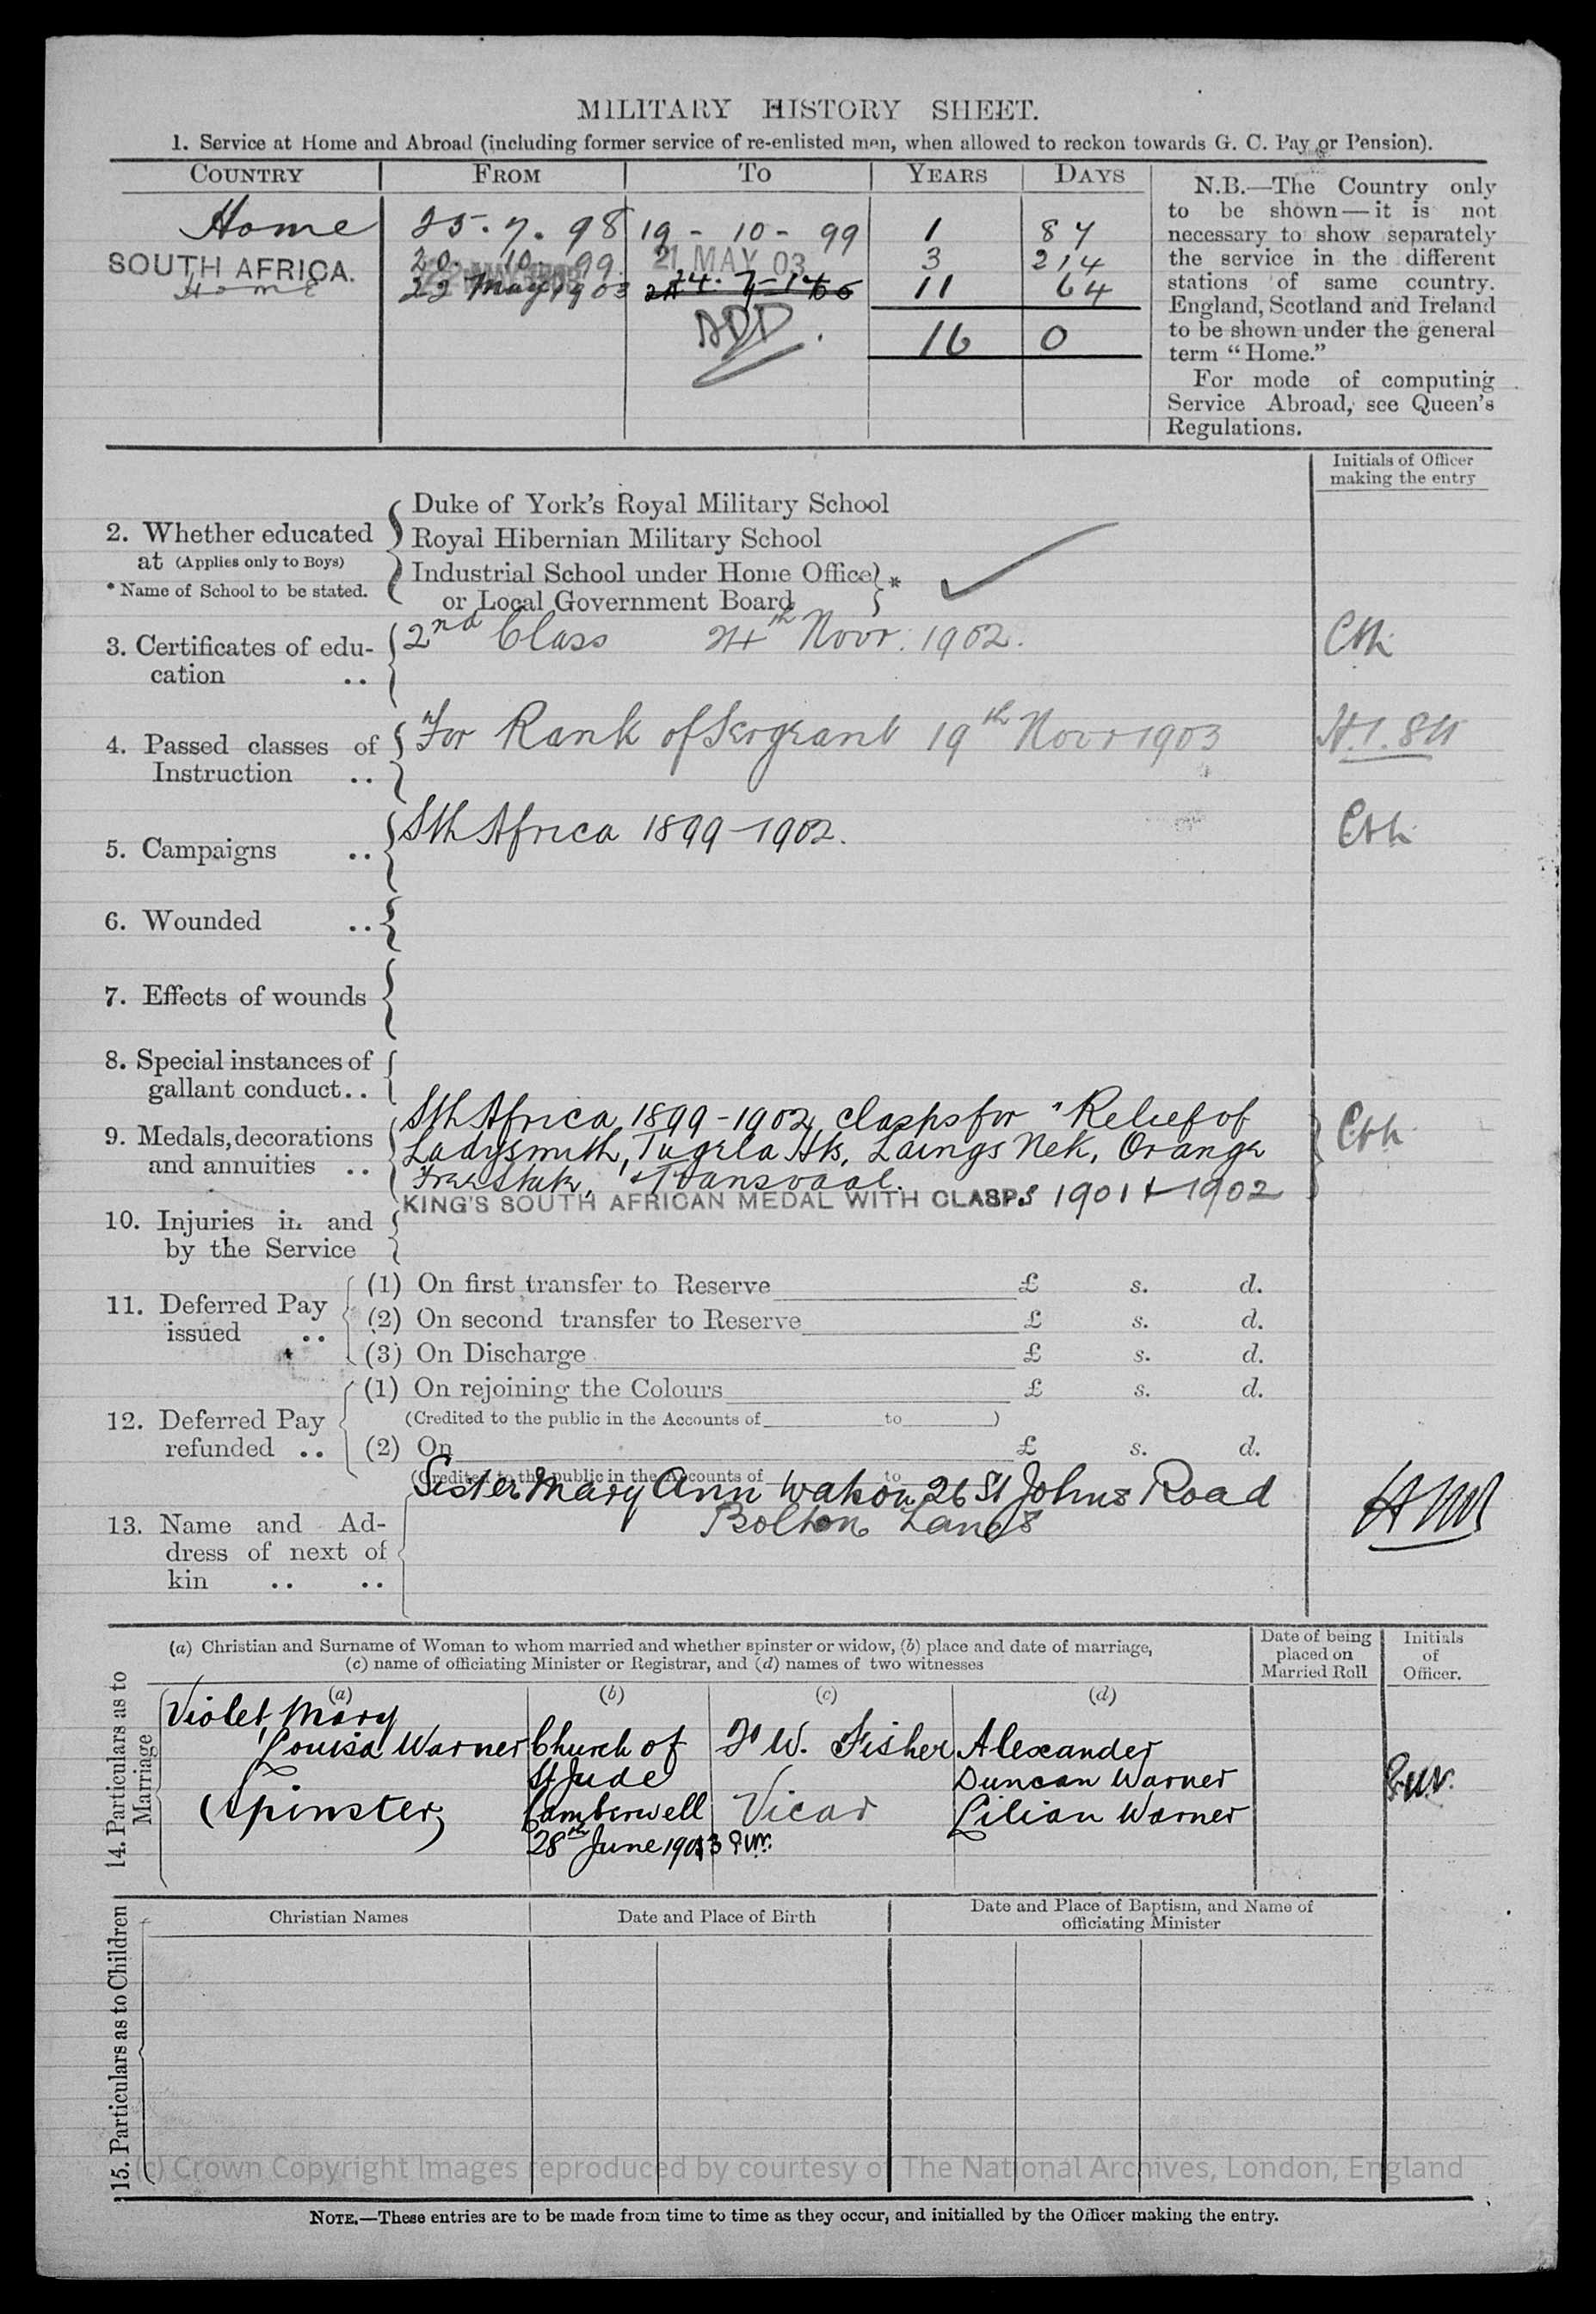 MILITARY HISTORY SHEET.
1. Service at Home and Abroad (including former service of re-enlisted men, when allowed to reckon towards G. C. Pay or Pension).
COUNTRY FROM TO YEARS DAYS
Home 25.7.98 19-10-99 1 87
SOUTH AFRICA. 20.10.99. 21 MAY 03 3 214
Home 22 May 1903 24.7-1 11 64
16 0
N.B.—The Country only
to be shown—it is not
necessary to show separately
the service in the different
stations of same country.
England, Scotland and Ireland
to be shown under the general
term "Home."
For mode of computing
Service Abroad, see Queen's
Regulations.
Initials of Officer
making the entry
2. Whether educated
at (Applies only to Boys)
* Name of School to be stated.
Duke of York's Royal Military School
Royal Hibernian Military School
Industrial School under Home Office
or Local Government Board *
3. Certificates of edu-
cation ..
2nd Class 24th Novr. 1902.
4. Passed classes of
Instruction ..
For Rank of Sergeant 19th Novr 1903
5. Campaigns ..
Sth Africa 1899-1902.
6. Wounded ..
7. Effects of wounds
8. Special instances of
gallant conduct..
9. Medals, decorations
and annuities ..
Sth Africa 1899-1902, clasps for "Relief of
Ladysmith, Tugela Hts, Laings Nek, Orange
Free State, & Transvaal.
KING'S SOUTH AFRICAN MEDAL WITH CLASPS 1901 & 1902
10. Injuries in and
by the Service
11. Deferred Pay
issued ..
(1) On first transfer to Reserve £ s. d.
(2) On second transfer to Reserve £ s. d.
(3) On Discharge £ s. d.
12. Deferred Pay
refunded ..
(1) On rejoining the Colours £ s. d.
(Credited to the public in the Accounts of to )
(2) On £ s. d.
(Credited to the public in the Accounts of to
13. Name and Ad-
dress of next of
kin .. ..
Sister Mary Ann Watson 26 St Johns Road
Bolton Lancs
14. Particulars as to
Marriage
(a) Christian and Surname of Woman to whom married and whether spinster or widow, (b) place and date of marriage,
(c) name of officiating Minister or Registrar, and (d) names of two witnesses
Date of being
placed on
Married Roll
Initials
of
Officer.
(a) (b) (c) (d)
Violet Mary
Louisa Warner
(Spinster)
Church of
St Jude
Camberwell
28th June 1903
F W. Fisher
Vicar
Alexander
Duncan Warner
Lilian Warner
15. Particulars as to Children
Christian Names
Date and Place of Birth
Date and Place of Baptism, and Name of
officiating Minister
(c) Crown Copyright Images reproduced by courtesy of The National Archives, London, England
NOTE.—These entries are to be made from time to time as they occur, and initialled by the Officer making the entry.